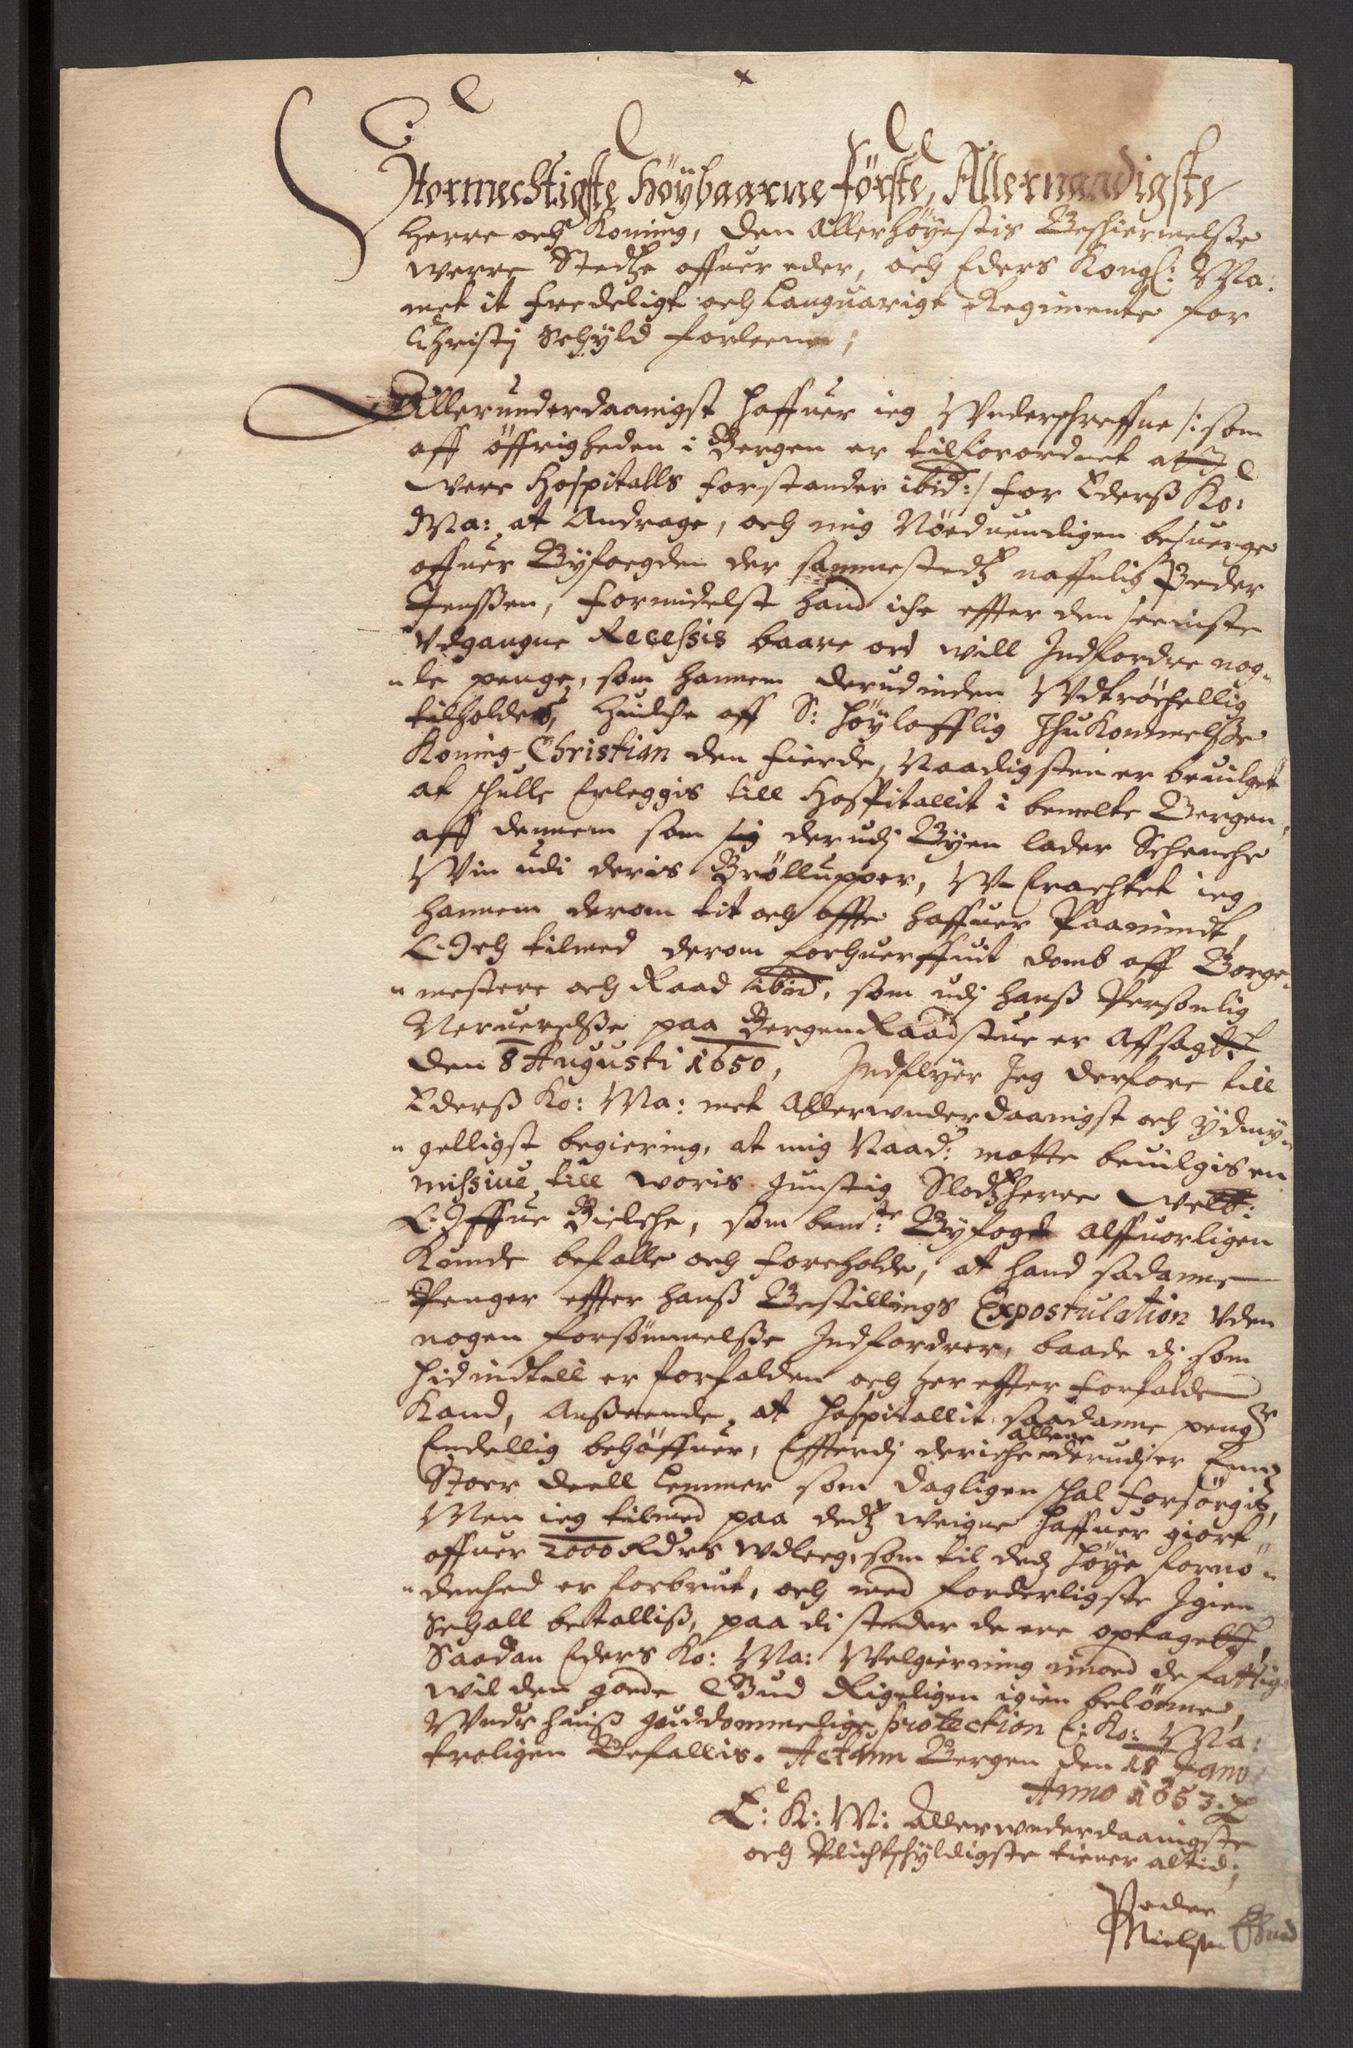 Stormechtigste Höybaarne förste, Allernaadigste
Herre och Koning, den Allerhöyestis Beschiermelsse
werre Stedtze offuer eder, och Eders Kongl: Ma:
met it fredeligt och Languarigt Regimente for
Christj Schyld forleene;
Allerunderdaanigst haffuer ieg Underschreffne /: som
aff öffrigheden i Bergen er tilforordnet att
were Hospitalls forstander ibid: / for Ederss Ko:
Ma: at Andrage, och mig Nöeduendigen besuerge
offuer Byfoegden der sammestedtz naffnlig Peder
Jenssen, formidelst hand iche effter den seeniste
Udgangne Recessis baare ord will Indfordre nog-
le penge, som hannem derudinden Udtröchellig
tilholdes, Huilche aff S: Höylofflig Ihukommelsse
Koning Christian den fierde, Naadigsten er beuilget
at schulle Erleggis till Hospitallit i bemelte Bergen,
aff dennem som sig derudj Byen lader Schenche
Win udi deris Bröllupper, U-Erachtet ieg
hannem derom tit och offte haffuer Paamindt,
Och tilmed derom forhuerffuit domb aff Borge-
mestere och Raad ibid, som udj hanss Personlig
Neruerelsse paa Bergen Raadstue er Affsagt
den 8 Augusti 1650, Indflyer Jeg derfore till
Ederss Ko: Ma: met Allerwnderdaanigst och ydmy-
gelligst begiering, at mig Naad: motte beuilgis en
missiue till woris gunstig Slodtzherre Welb:
Offue Bielche, som bemte: Byfoget alffuorligen
Kunde befalle och foreholde, at hand sadanne
Penger effter hanss Bestillings Expostulation uden
nogen forsömmelsse Indfordrer, baade di som
hid indtill er forfalden och her effter forfalde
Kand, Ansseende, at Hospitallit saadanne penge
Endellig behöffuer, Effterdj der iche allene derudj er Enn
Stoer deell Lemmer som dagligen schal forsörgis,
Men ieg tilmed paa detz weigne haffuer giort
offuer 2000 Rdrs udleeg, som til detz höye fornö-
denhed er forbrut, och med forderligste Igien
Schall betalliss, paa di steder de ere optaget,
Saadan Eders Ko: Ma: Welgierning imod de fattige
wil den goede Gud Rigeligen igien belönne,
Under huiss guddommelige protection E: Ko: Ma:
troligen Befallis. Actum Bergen den 18 Janv
Anno 1653.
E: K: M: Allerwnderdaanigste
och Plichtschyldigste tiener altid;
Peder
Nielsen